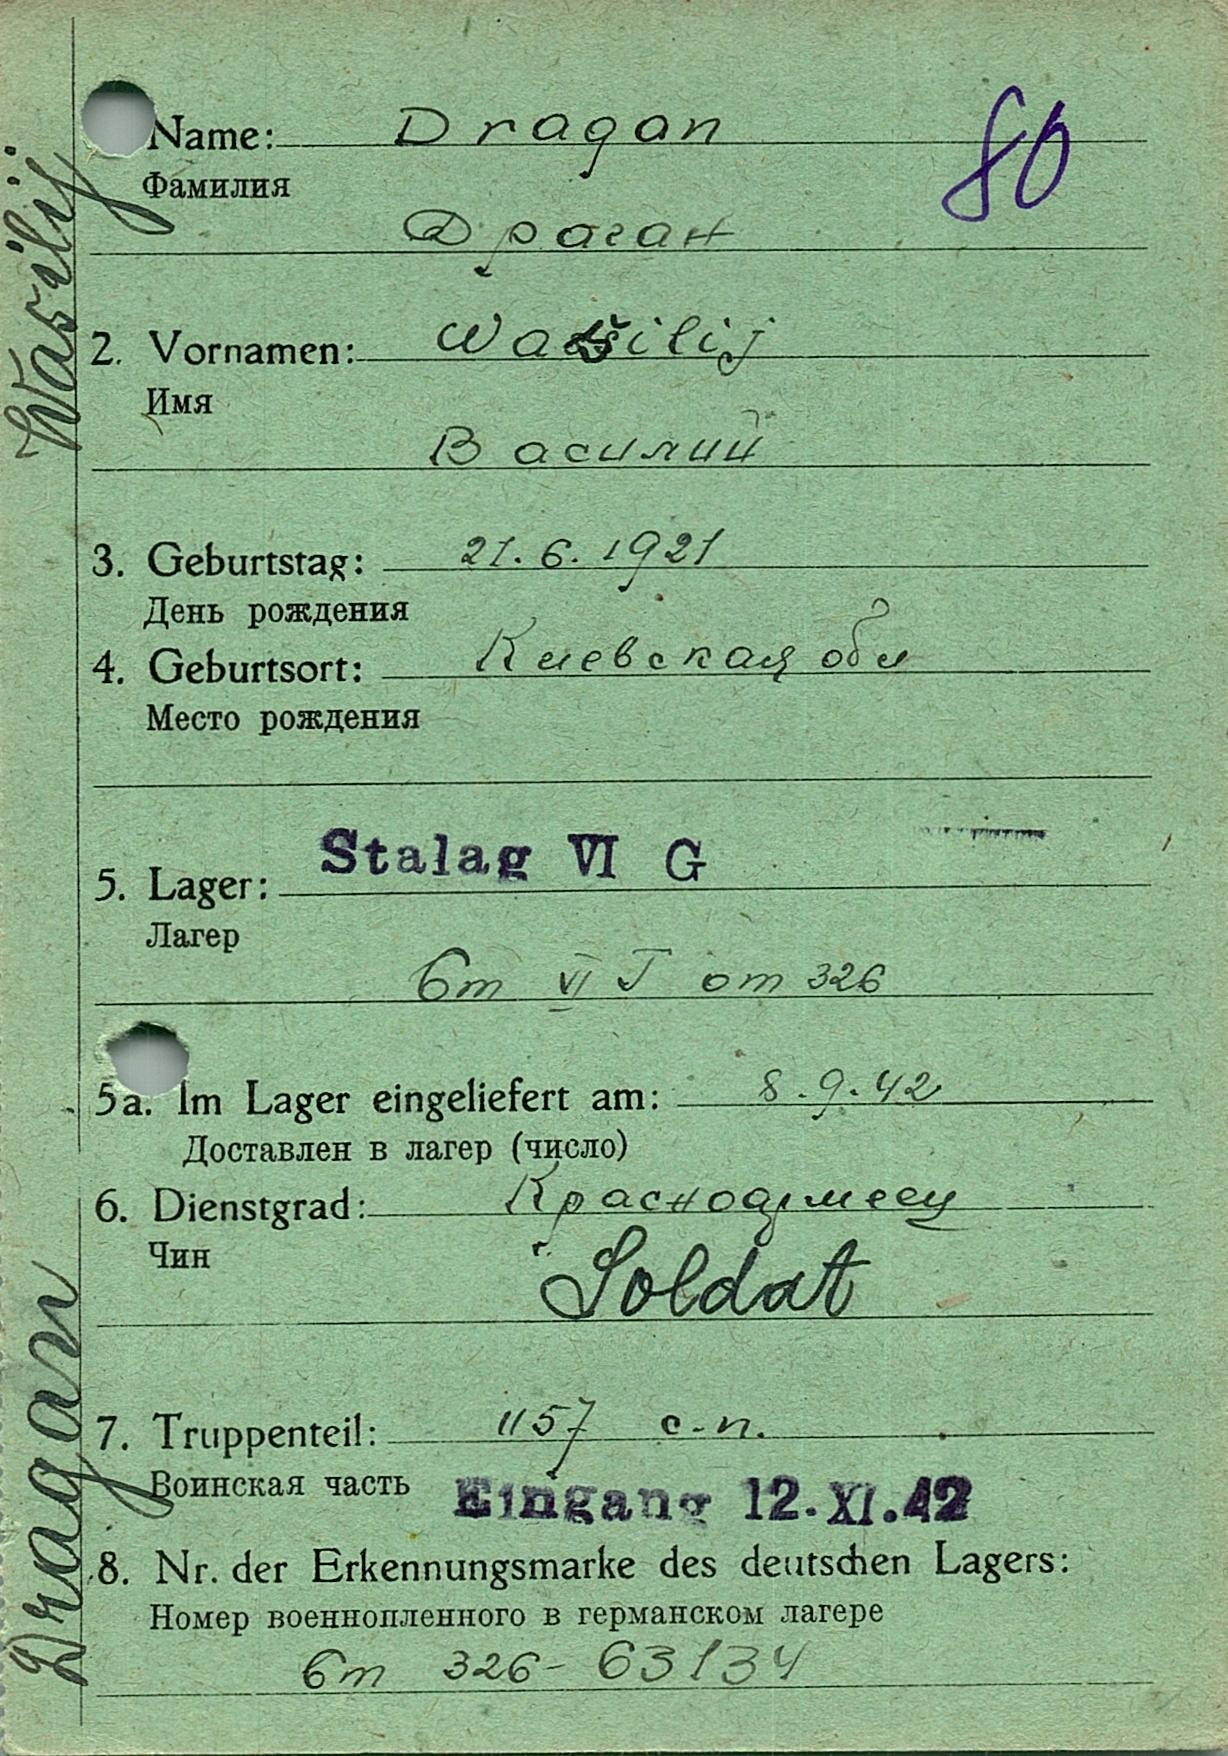 Name: Dragan
80
Фамилия
Драган
2. Vornamen: Wassilij
Имя
Василий
3. Geburtstag: 21.6.1921
День рождения
4. Geburtsort: Киевская обл
Место рождения
5. Lager: Stalag VI G
Лагер
бт VI Г от 326
5a. Im Lager eingeliefert am: 8.9.42
Доставлен в лагер (число)
6. Dienstgrad: Красноармеец
Чин
Soldat
7. Truppenteil: 1157 с.п.
Воинская часть Eingang 12.XI.42
8. Nr. der Erkennungsmarke des deutschen Lagers:
Номер военнопленного в германском лагере
бт 326-63134
Dragan Wasilij